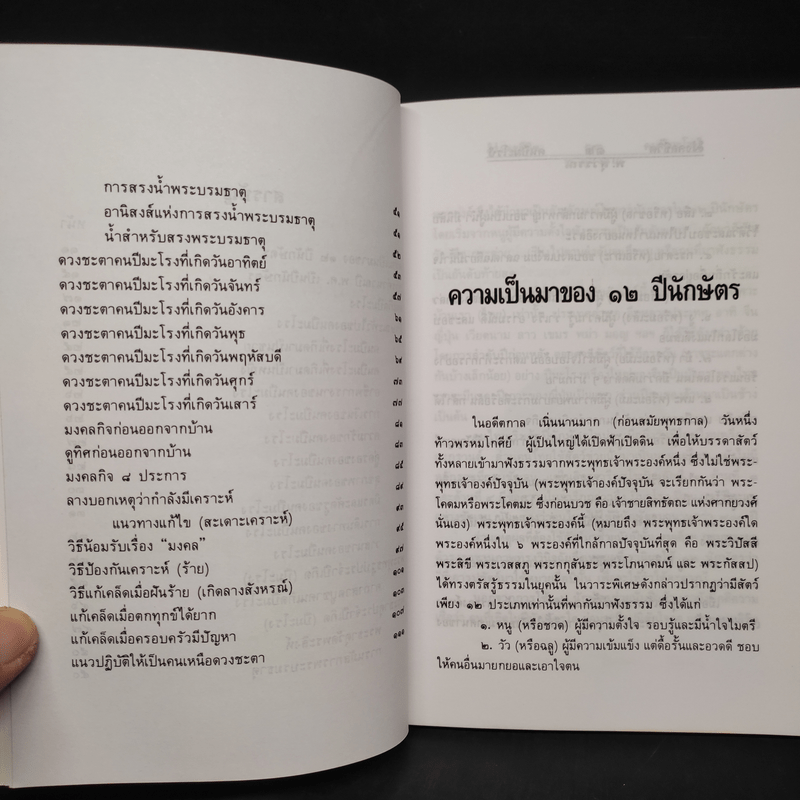 การสรงน้ำพระบรมธาตุ
อานิสงส์แห่งการสรงน้ำพระบรมธาตุ ๕๑
น้ำสำหรับสรงพระบรมธาตุ ๕๑
ดวงชะตาคนปีมะโรงที่เกิดวันอาทิตย์ ๕๒
ดวงชะตาคนปีมะโรงที่เกิดวันจันทร์ ๕๓
ดวงชะตาคนปีมะโรงที่เกิดวันอังคาร ๕๗
ดวงชะตาคนปีมะโรงที่เกิดวันพุธ ๖๑
ดวงชะตาคนปีมะโรงที่เกิดวันพฤหัสบดี ๖๕
ดวงชะตาคนปีมะโรงที่เกิดวันศุกร์
ดวงชะตาคนปีมะโรงที่เกิดวันเสาร์
มงคลกิจก่อนออกจากบ้าน ๗๗
ดูทิศก่อนออกจากบ้าน
มงคลกิจ ๘ ประการ
ลางบอกเหตุว่ากำลังมีเคราะห์ ๘๕
แนวทางแก้ไข (สะเดาะเคราะห์)
วิธีน้อมรับเรื่อง “มงคล”
วิธีป้องกันเคราะห์ (ร้าย)
วิธีแก้เคล็ดเมื่อฝันร้าย (เกิดลางสังหรณ์)
แก้เคล็ดเมื่อตกทุกข์ได้ยาก
แก้เคล็ดเมื่อครอบครัวมีปัญหา ๑๐๗
แนวปฏิบัติให้เป็นคนเหนือดวงชะตา ๑๑๑
ความเป็นมาของ ๑๒ ปีนักษัตร
ในอดีตกาล เนิ่นนานมาก (ก่อนสมัยพุทธกาล) วันหนึ่ง
ท้าวพรหมโกศีย์ ผู้เป็นใหญ่ได้เปิดฟ้าเปิดดิน เพื่อให้บรรดาสัตว์
ทั้งหลายเข้ามาฟังธรรมจากพระพุทธเจ้าพระองค์หนึ่ง ซึ่งไม่ใช่พระ-
พุทธเจ้าองค์ปัจจุบัน (พระพุทธเจ้าองค์ปัจจุบัน จะเรียกกันว่า พระ-
โคดมหรือพระโคตมะ ซึ่งก่อนบวช คือ เจ้าชายสิทธัตถะ แห่งศากยวงศ์
นั่นเอง) พระพุทธเจ้าพระองค์นี้ (หมายถึง พระพุทธเจ้าพระองค์ใด
พระองค์หนึ่งใน ๖ พระองค์ที่ใกล้กาลปัจจุบันที่สุด คือ พระวิปัสสี
พระสิขี พระเวสสภู พระกกุสันธะ พระโกนาคมน์ และ พระกัสสป)
ได้ทรงตรัสรู้ธรรมในยุคนั้น ในวาระพิเศษดังกล่าวปรากฏว่ามีสัตว์
เพียง ๑๒ ประเภทเท่านั้นที่พากันมาฟังธรรม ซึ่งได้แก่
๑. หนู (หรือชวด) ผู้มีความตั้งใจ รอบรู้และมีน้ำใจไมตรี
๒. วัว (หรือฉลู) ผู้มีความเข้มแข็ง แต่ดื้อรั้นและอวดดี ชอบ
ให้คนอื่นมายกยอและเอาใจตน